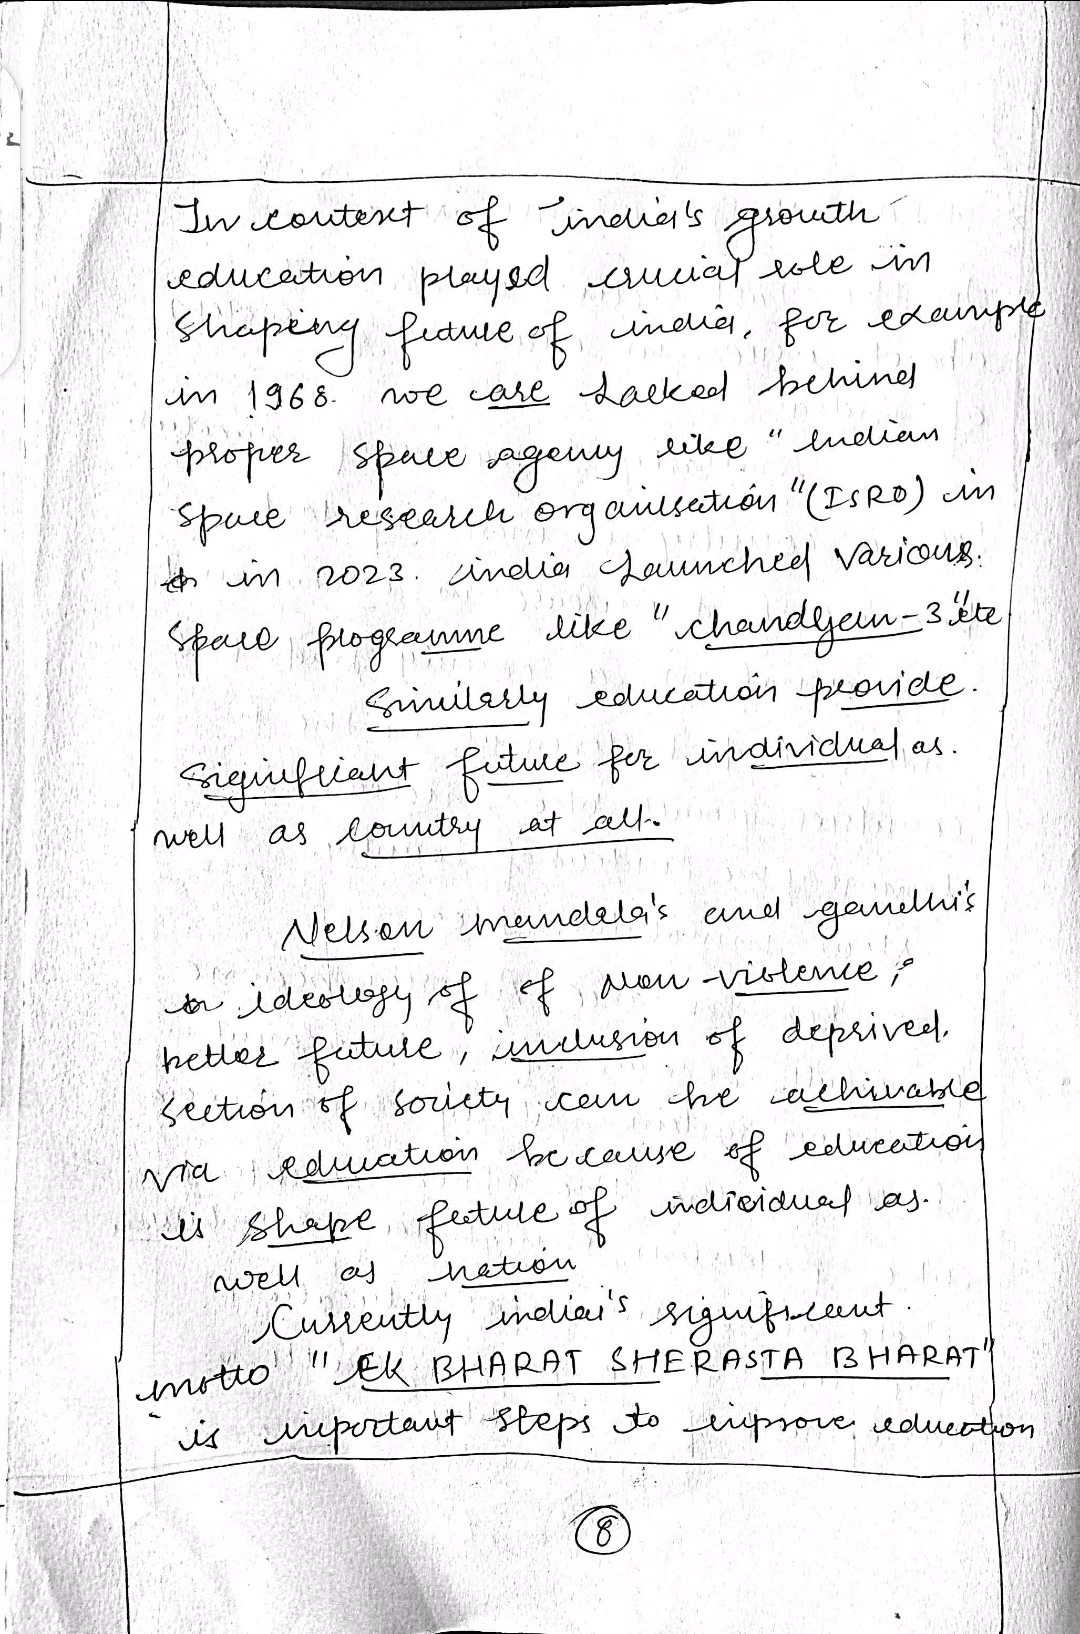 In context of india's growth
education played crucial role in
shaping future of india, for example
in 1968. we are lacked behind
proper space agency like "Indian
space research organisation" (ISRO) in
in 2023. india launched various.
space programme like "chandyan-3" etc
Similarly education provide.
significant future for individual as.
well as country at all.
Nelson mandela's and gandhi's
ideology of of non-violence,
better future, inclusion of deprived.
section of society can be achivable
via education because of education
is shape future of individual as.
well as nation
Currently india's significant.
motto "EK BHARAT SHERASTA BHARAT"
is important steps to improve education
8